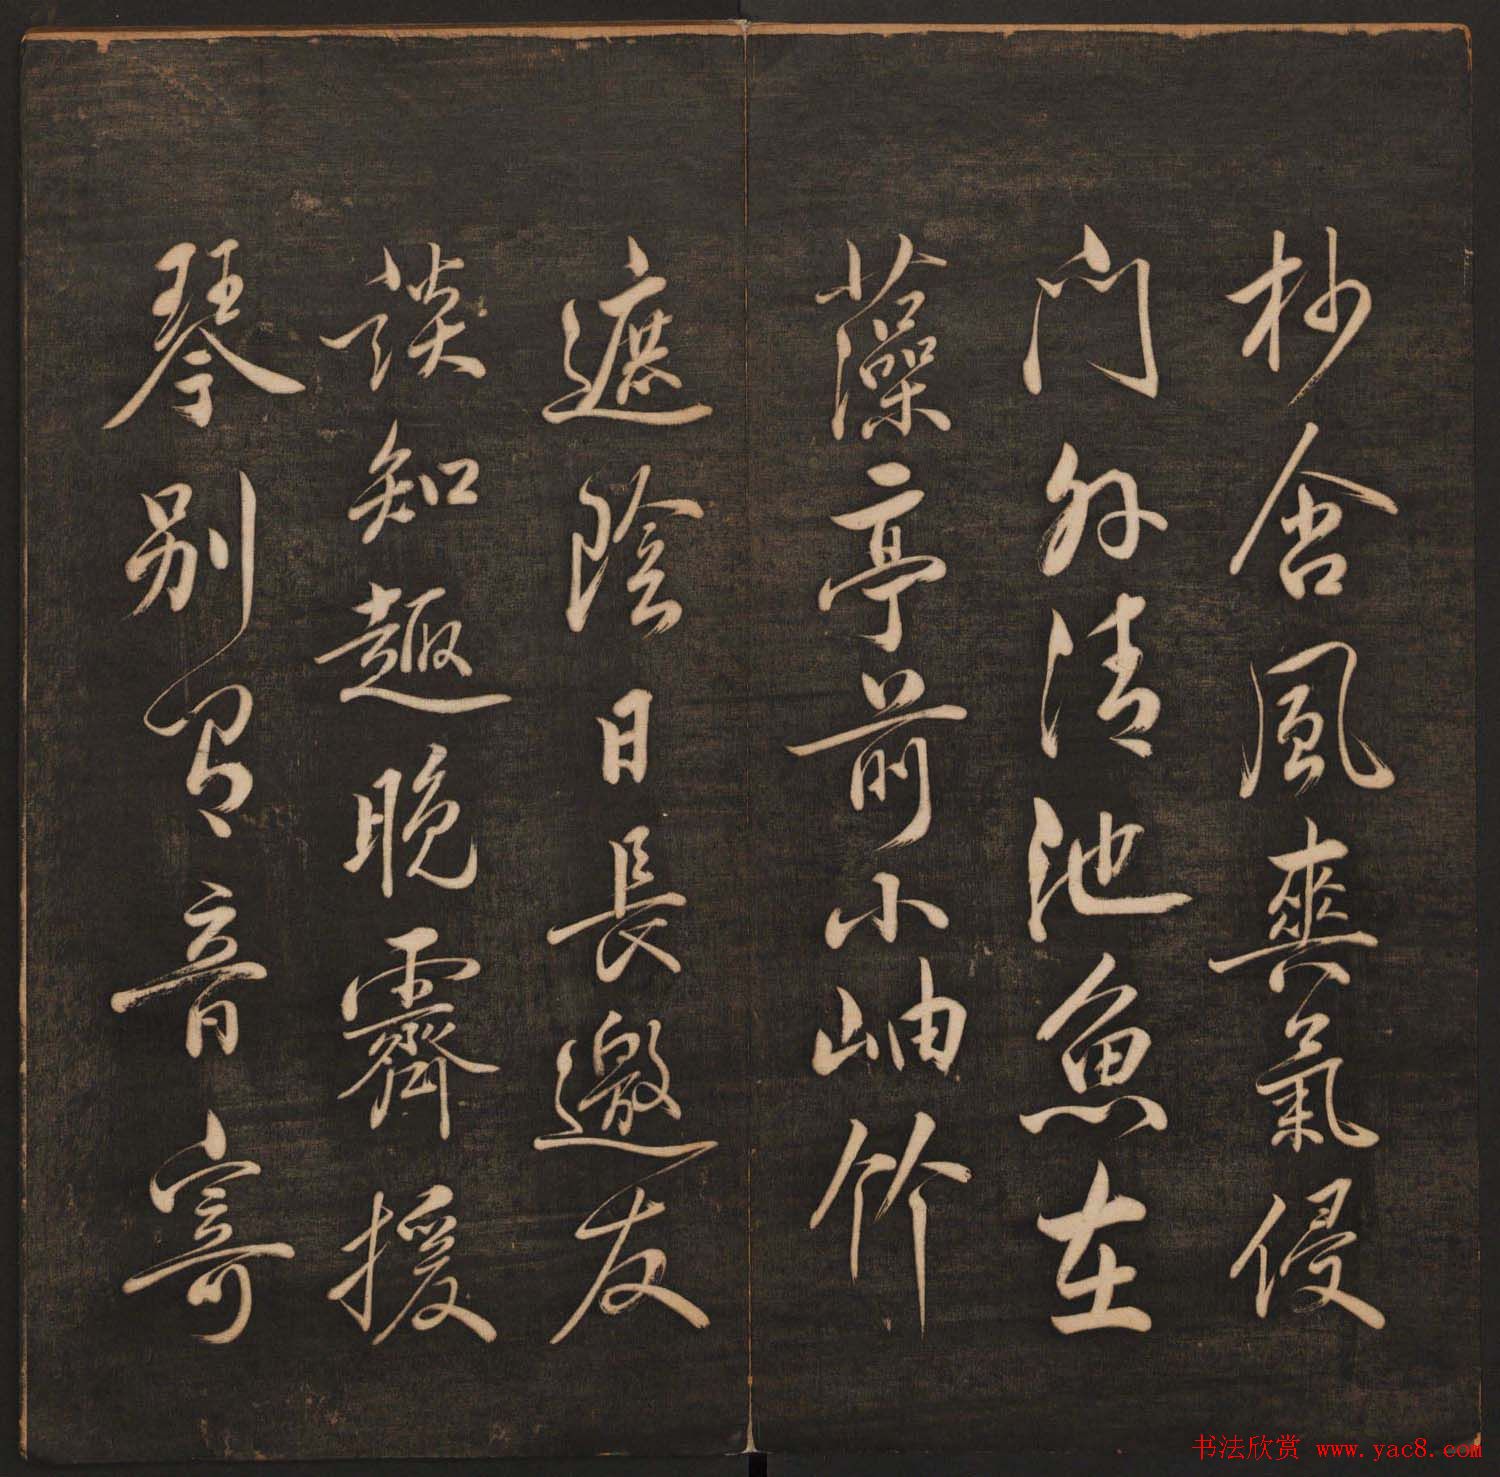 杪含風爽氣侵
門外清池魚在
藻亭前小岫竹
遮陰日長邀友
談知趣晚霽援
琴別有音寄
书法欣赏 www.yac8.com